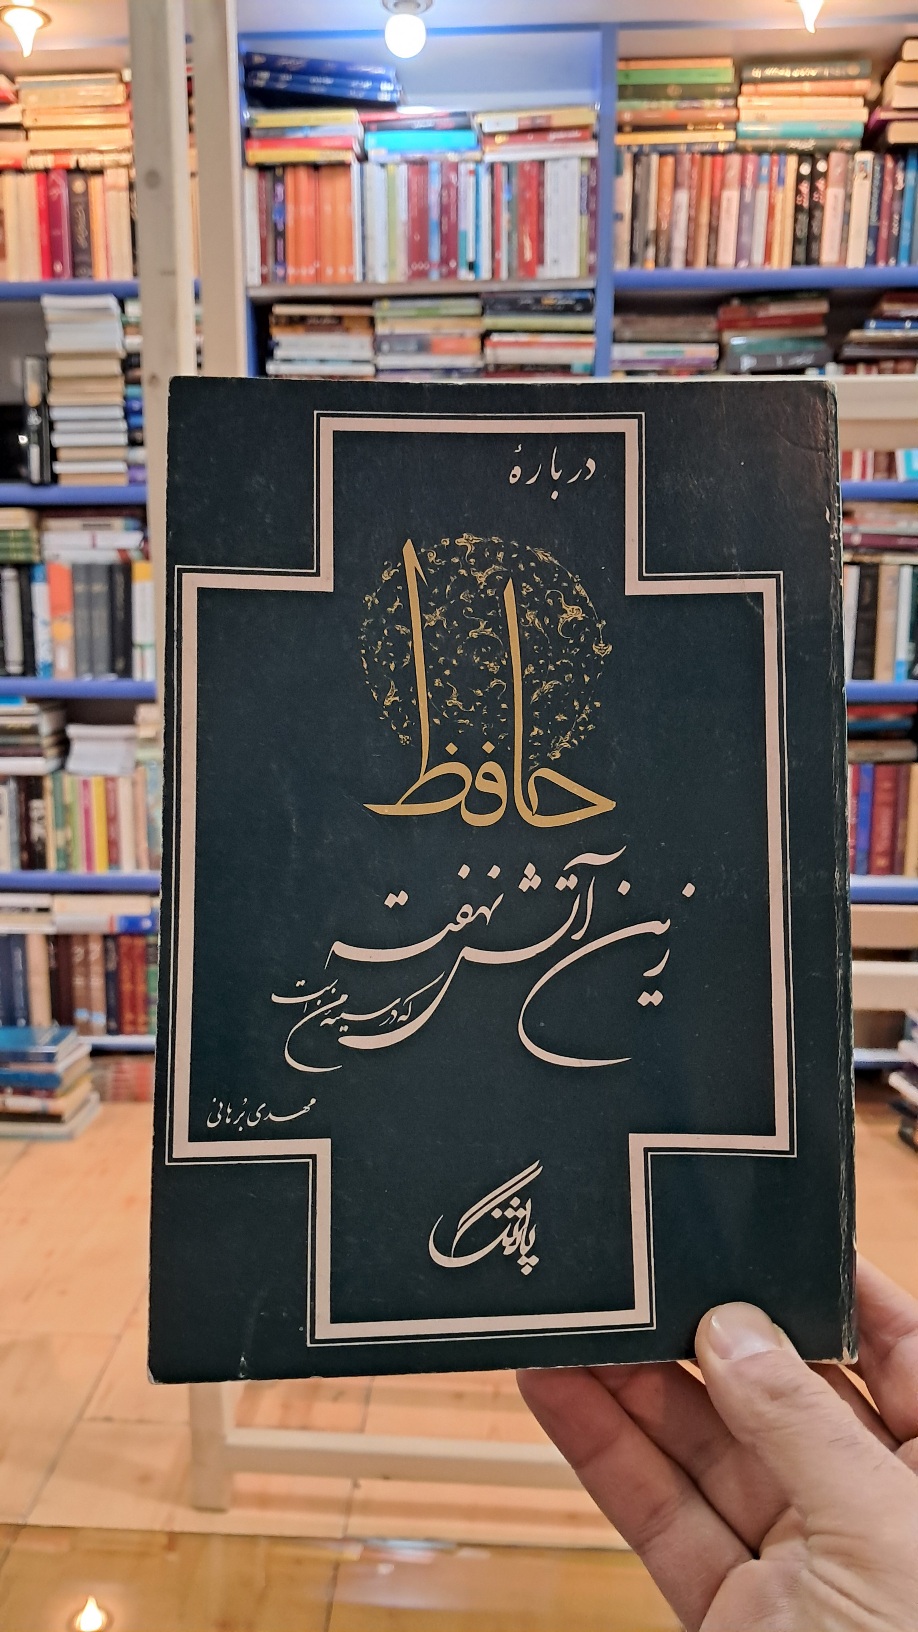 دربارهٔ
حافظ
زین آتش نهفته
که در سینه من است
مهدی بُرهانی
پاژنگ